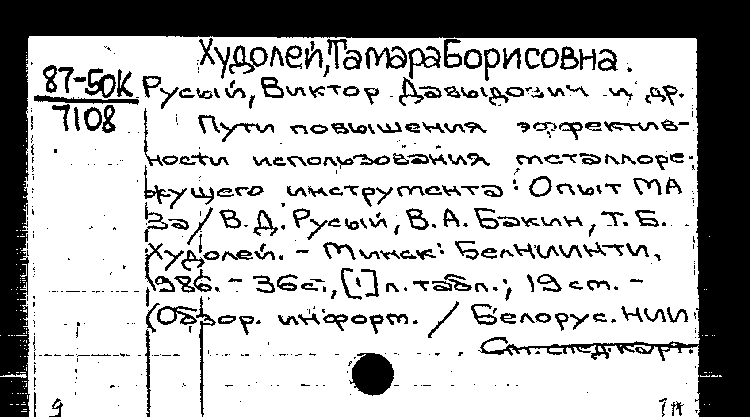 Худолей, Тамара Борисовна.
87-50К
7108
Русый, Виктор Давыдович и др.
Пути повышения эффектив-
ности использования металлоре-
жущего инструмента: Опыт МА
За / В.Д. Русый, В.А. Бакин, Т.Б.
Худолей. - Минск: БелНИИНТИ,
1986. - 36 с., [1] л. табл.; 19 см. -
(Обзор. информ. / Белорус. НИИ
См. след. карт.
9